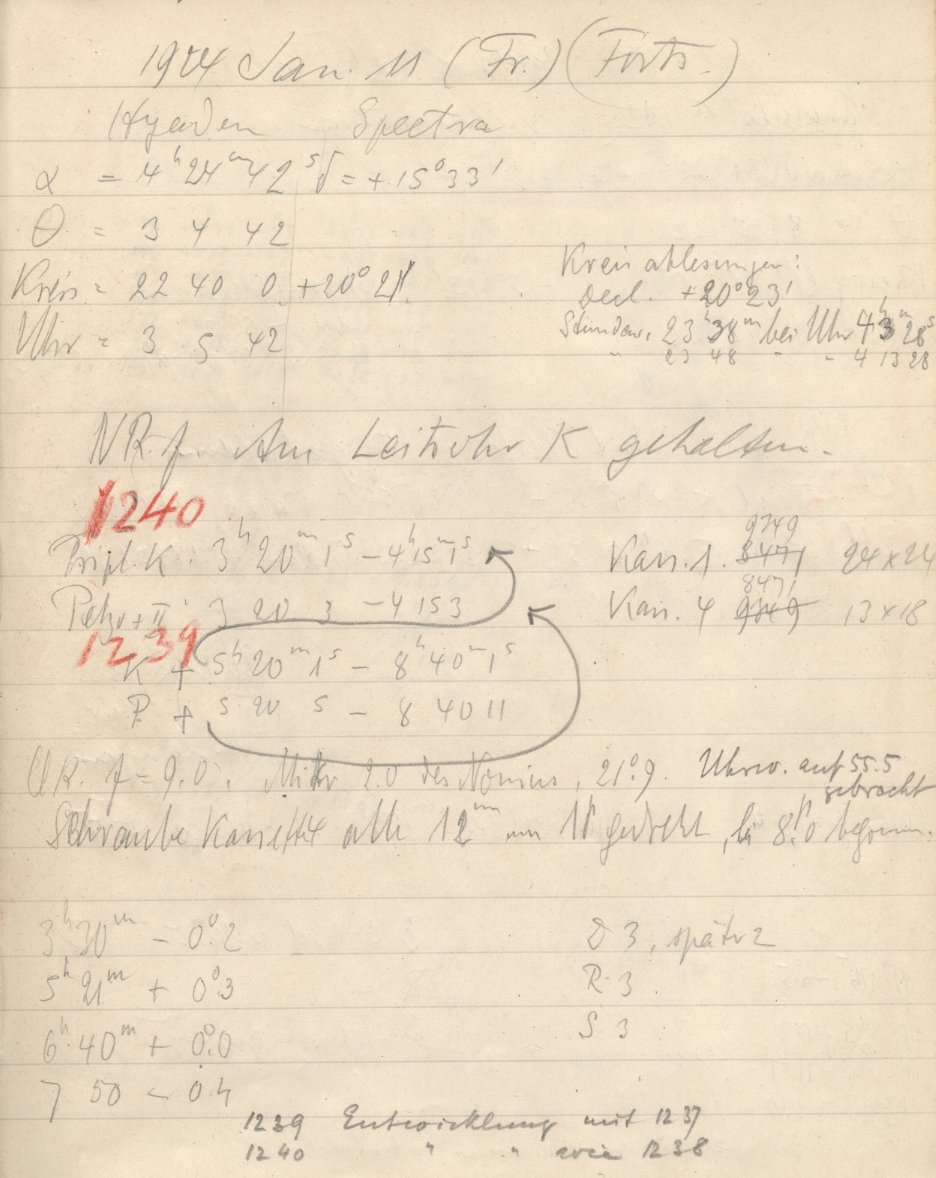 1924 Jan. 11 (Fr.) (Forts.)
Hyaden Spectra
α = 4h 24m 42s δ = +15° 33'
θ = 3 4 42
Kreis = 22 40 0 +20° 21'.
Uhr = 3 5 42
Kreisablesungen:
Decl. +20° 23'
Stundenw. 23h 38m bei Uhr 4h 3m 28s
" 23 48 " " 4 13 28
NR. f. Am Leitrohr K gehalten.
1240
Tripl. K : 3h 20m 1s – 4h 15m 1s Kass. 1. 9749 8471 24×24
Petzv + II 3 20 3 – 4 15 3 Kass. 4 8471 9749 13×18
1239
K + 5h 20m 1s – 8h 40m 1s
P + 5 20 5 – 8 40 11
OR. f = 9.0. Mikr 2.0 des Nonius, 21°.9. Uhrw. auf 55.5 gebracht
Schraube Kassette 4 alle 12m um 1° gedreht, bei 8.0 begonn.
3h 30m – 0°.2
5h 21m + 0°.3
6h 40m + 0°.0
7 50 – 0.4
D 3, später 2
R. 3.
S 3
1239 Entwicklung mit 1237
1240 " " wie 1238